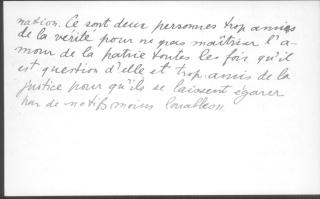 nation. Ce sont deux personnes trop amies
de la vérité pour ne pas maîtriser l'a-
mour de la patrie toutes les fois qu'il
est question d'elle et trop amis de la
justice pour qu'ils se laissent égarer
par de motifs moins louables».